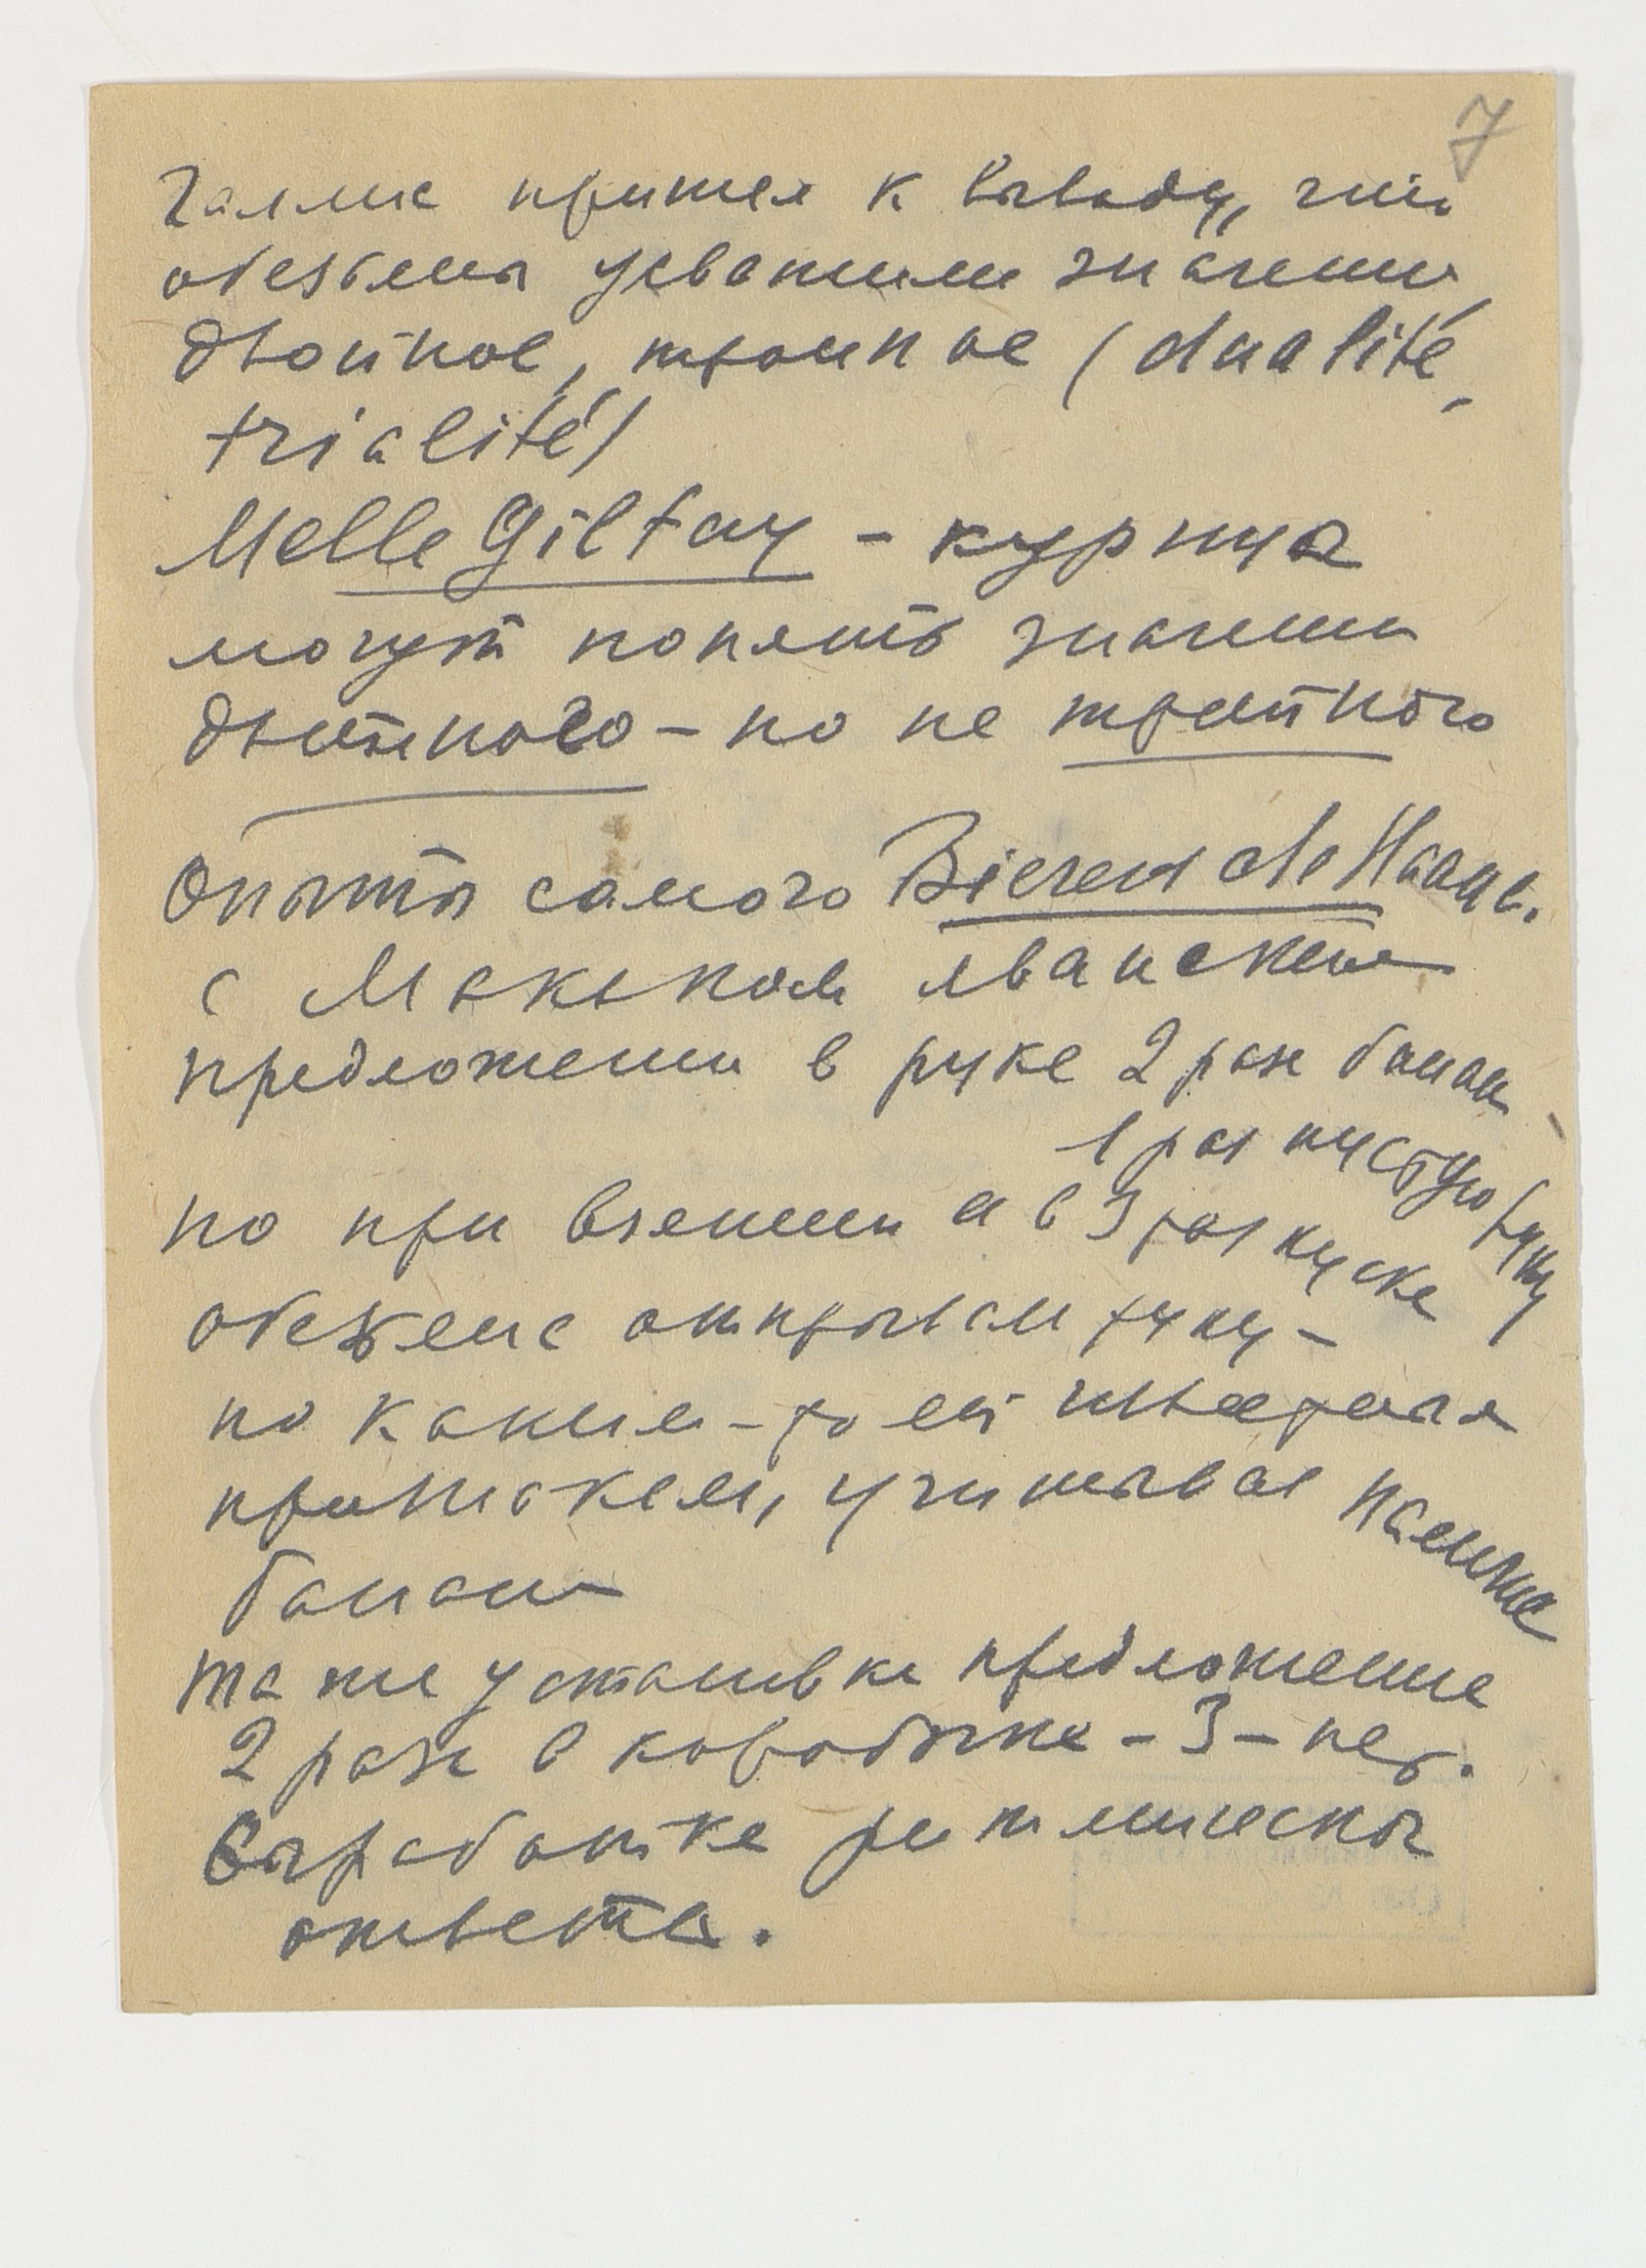 7
Галлис пришел к выводу, что
обезьяны усвоили значение
двойное, тройное (dualité,
trialité)
Melle Giltay – курица
могут понять значение
двойного – но не тройного
Опыты самого Bierens de Haan'a.
с Макаком яванским
предложении в руке 2 раза банан
1 раз пустую руку
но при взятии а в 3 раз куске
обезьяна открывала руку –
но каким-то ей
учитывая наличие
банана
та же установка предложение
2 раза в коробочке – 3 – нет.
Выработка ритмическая
ответа.